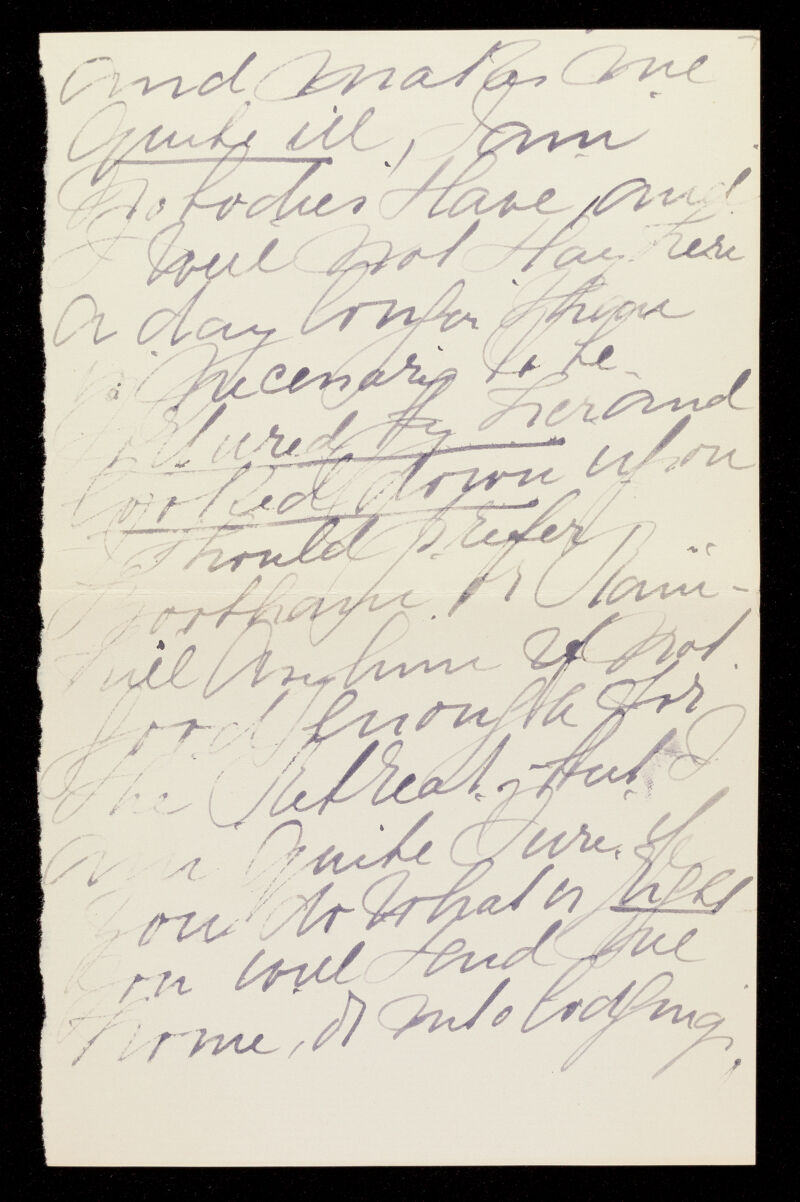 and makes me
quite ill, I am
Nobodies Slave, and
I will not stay here
a day longer than
is necessary to be
tortured by her and
looked down upon
I should prefer
Bootham or Rain-
hill Asylum if not
good enough for
the Retreat, but I
am quite sure, if
you do what is right
you will send me
home, or into lodging,